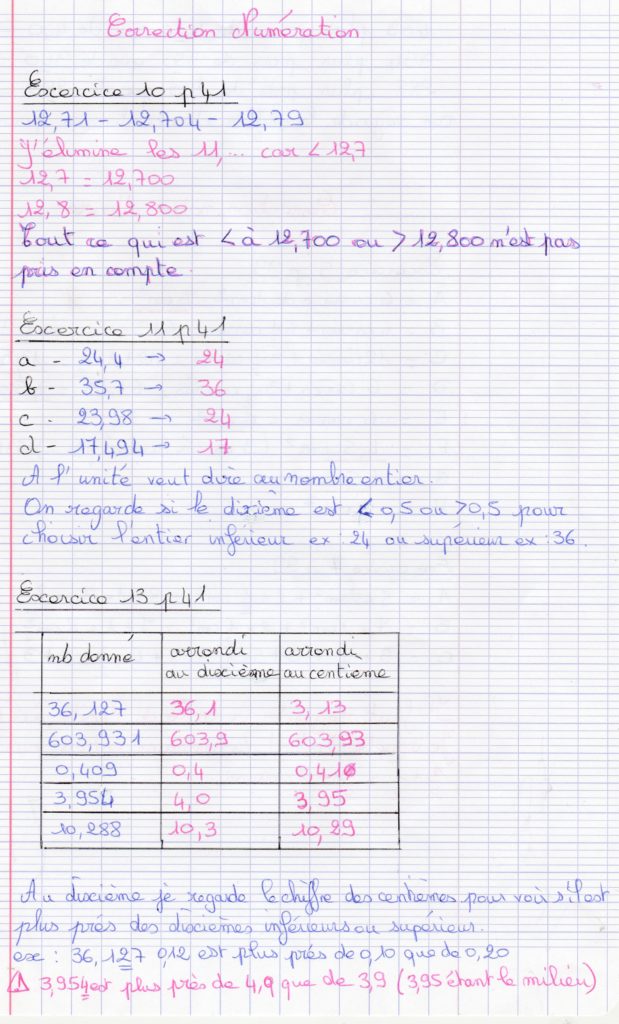 Correction Numération
Excercice 10 p 41
12,71 - 12,704 - 12,79
J'élimine les 11,... car < 12,7
12,7 = 12,700
12,8 = 12,800
Tout ce qui est < à 12,700 ou > 12,800 n'est pas
pris en compte.
Excercice 11 p 41
a - 24,4 → 24
b - 35,7 → 36
c - 23,98 → 24
d - 17,494 → 17
A l'unité veut dire au nombre entier.
On regarde si le dixième est < 0,5 ou > 0,5 pour
choisir l'entier inférieur ex : 24 ou supérieur ex : 36.
Excercice 13 p 41
nb donné arrondi au dixcième arrondi au centième
36,127 36,1 3,13
603,931 603,9 603,93
0,409 0,4 0,410
3,954 4,0 3,95
10,288 10,3 10,29
Au dixcième je regarde le chiffre des centièmes pour voir s'il est
plus près des dixcièmes inférieurs ou supérieur.
ex : 36,127 0,12 est plus près de 0,10 que de 0,20
⚠ 3,954 est plus près de 4,0 que de 3,9 (3,95 étant le milieu)